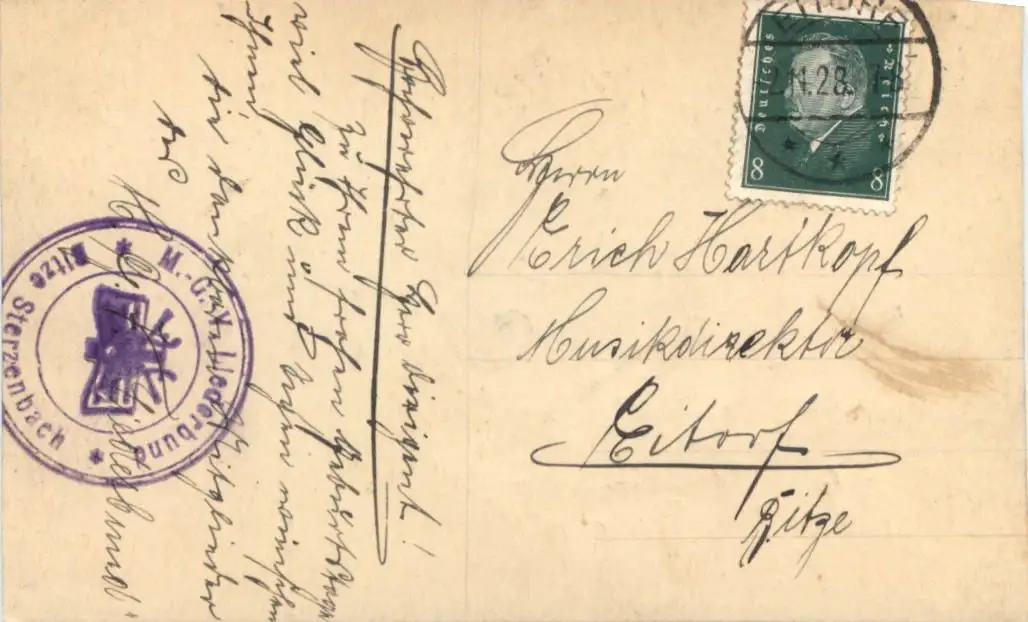 Hochverehrter Herr Dirigent!
zu Ihrem frohen Geburtstage
viel Glück und Segen wünschen
Ihnen
die dankbaren Mitglieder
des
M. G. V. Liederbund
M.-G.V. Liederbund
Bitze Sterzenbach
EITORF
2.11.28.
Deutsches Reich
8 8
Herrn
Erich Hartkopf
Musikdirektor
Eitorf
Bitze